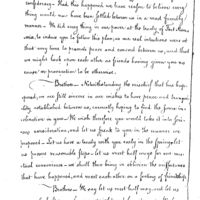 confederacy. Had this happened, we have reason to believe every
thing would now have been settled between us in a most friendly
manner. We did every thing in our power, at the treaty of
you, to induce you to follow this plan; as our real intentions were at
that very time to promote peace and concord between us, and that
we might look upon each other as friends having given you no
cause or provocation to be otherwise.
Brothers — Notwithstanding the mischief that has hap-
pened, we are still sincere in our wishes to have peace and tranqui-
lity established between us, earnestly hoping to find the same in-
clination in you. We wish therefore you would take it into seri-
ous consideration, and let us speak to you in the manner we
proposed. Let us have a treaty with you early in the spring; let
us pursue reasonable steps. Let us meet half way for our mu-
tual convenience. we shall then bring in oblivion the misfortunes
that have happened, and meet each other on a footing of friendship.
Brothers — We say let us meet half way, and let us